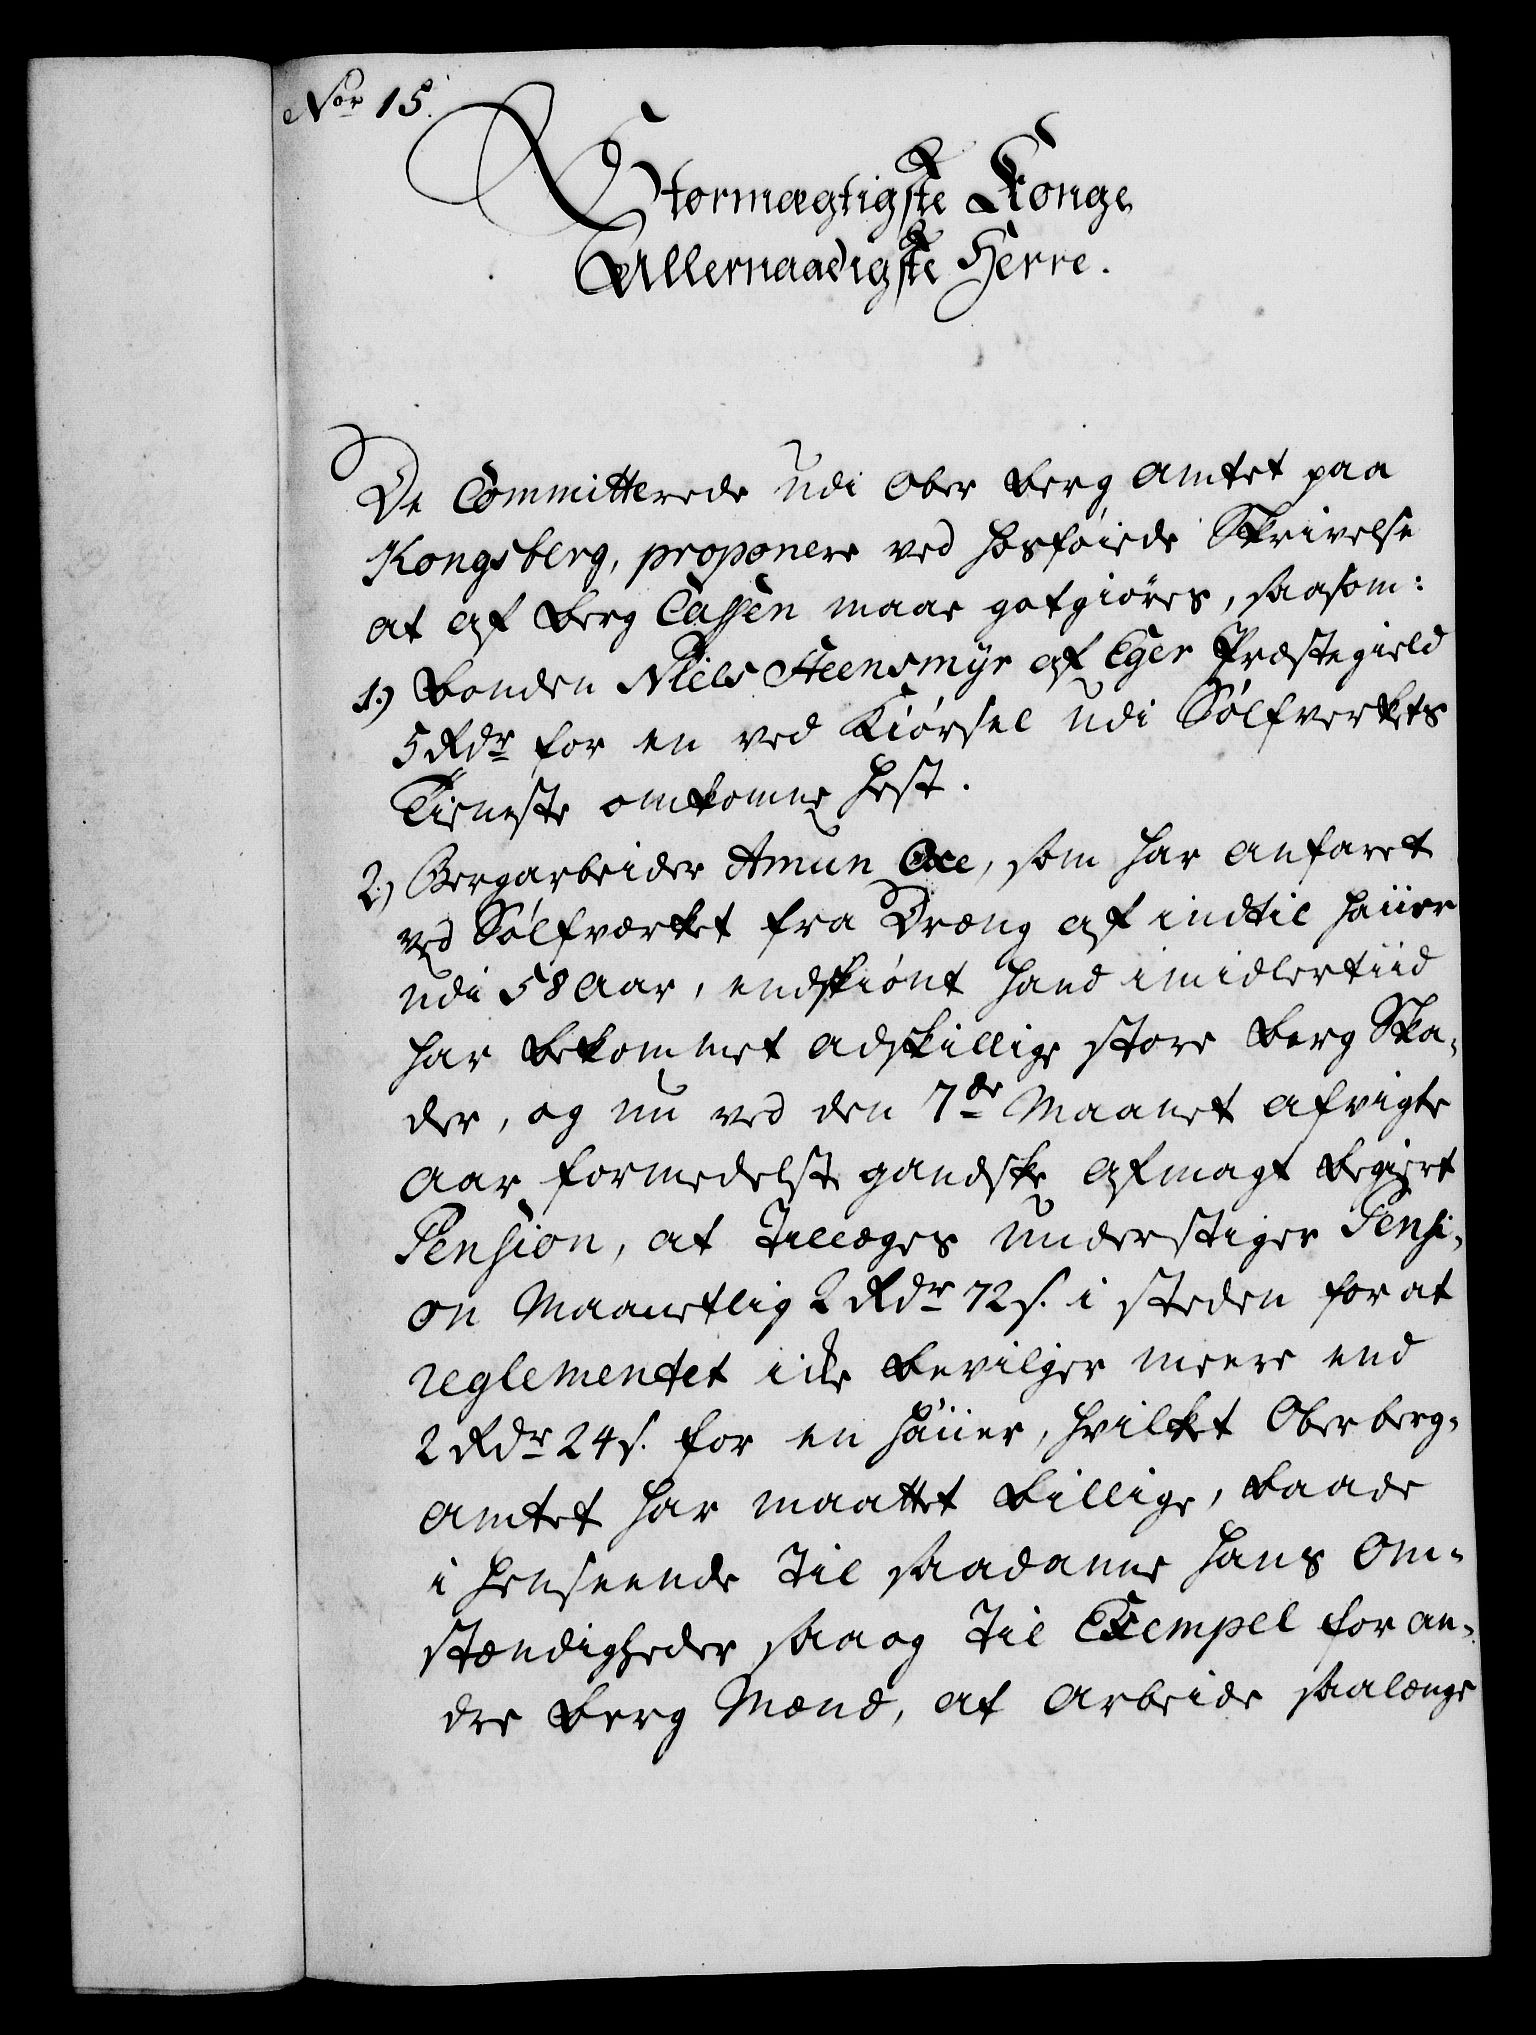 Nor 15.
Stormægtigste Konge
Allernaadigste Herre.
De Committerede udi Ober Berg Amtet paa
Kongsberg, proponere ved hosføiede Skrivelse
at af Berg Cassen maae gotgiøres, saasom:
1.) Bonden Niels Steensmyr af Eger Præstegield
5 Rdr for en ved Kiørsel udi Sølfverkets
Tieneste omkomne Hest.
2.) Bergarbeider Amun Oxe, som har anfaret
ved Sølfværket fra Dræng af indtil Häüer
udi 58 Aar, endskiønt hand imidlertiid
har bekommet adskillige store Berg Ska-
der, og nu ved den 7de Maanet afvigte
Aar formedelst gandske Afmagt begiert
Pension, at tillæges understiger Pensi-
on Maanetlig 2 Rdr 72 s. i steden for at
reglementet icke bevilger meere end
2 Rdr 24 s. for en Häüer, hvilket Oberberg-
amtet har maattet billige, baade
i henseende til saadanne hans Om-
stændigheder saa og til Exempel for an-
dre Berg Mænd, at arbeide saalænge